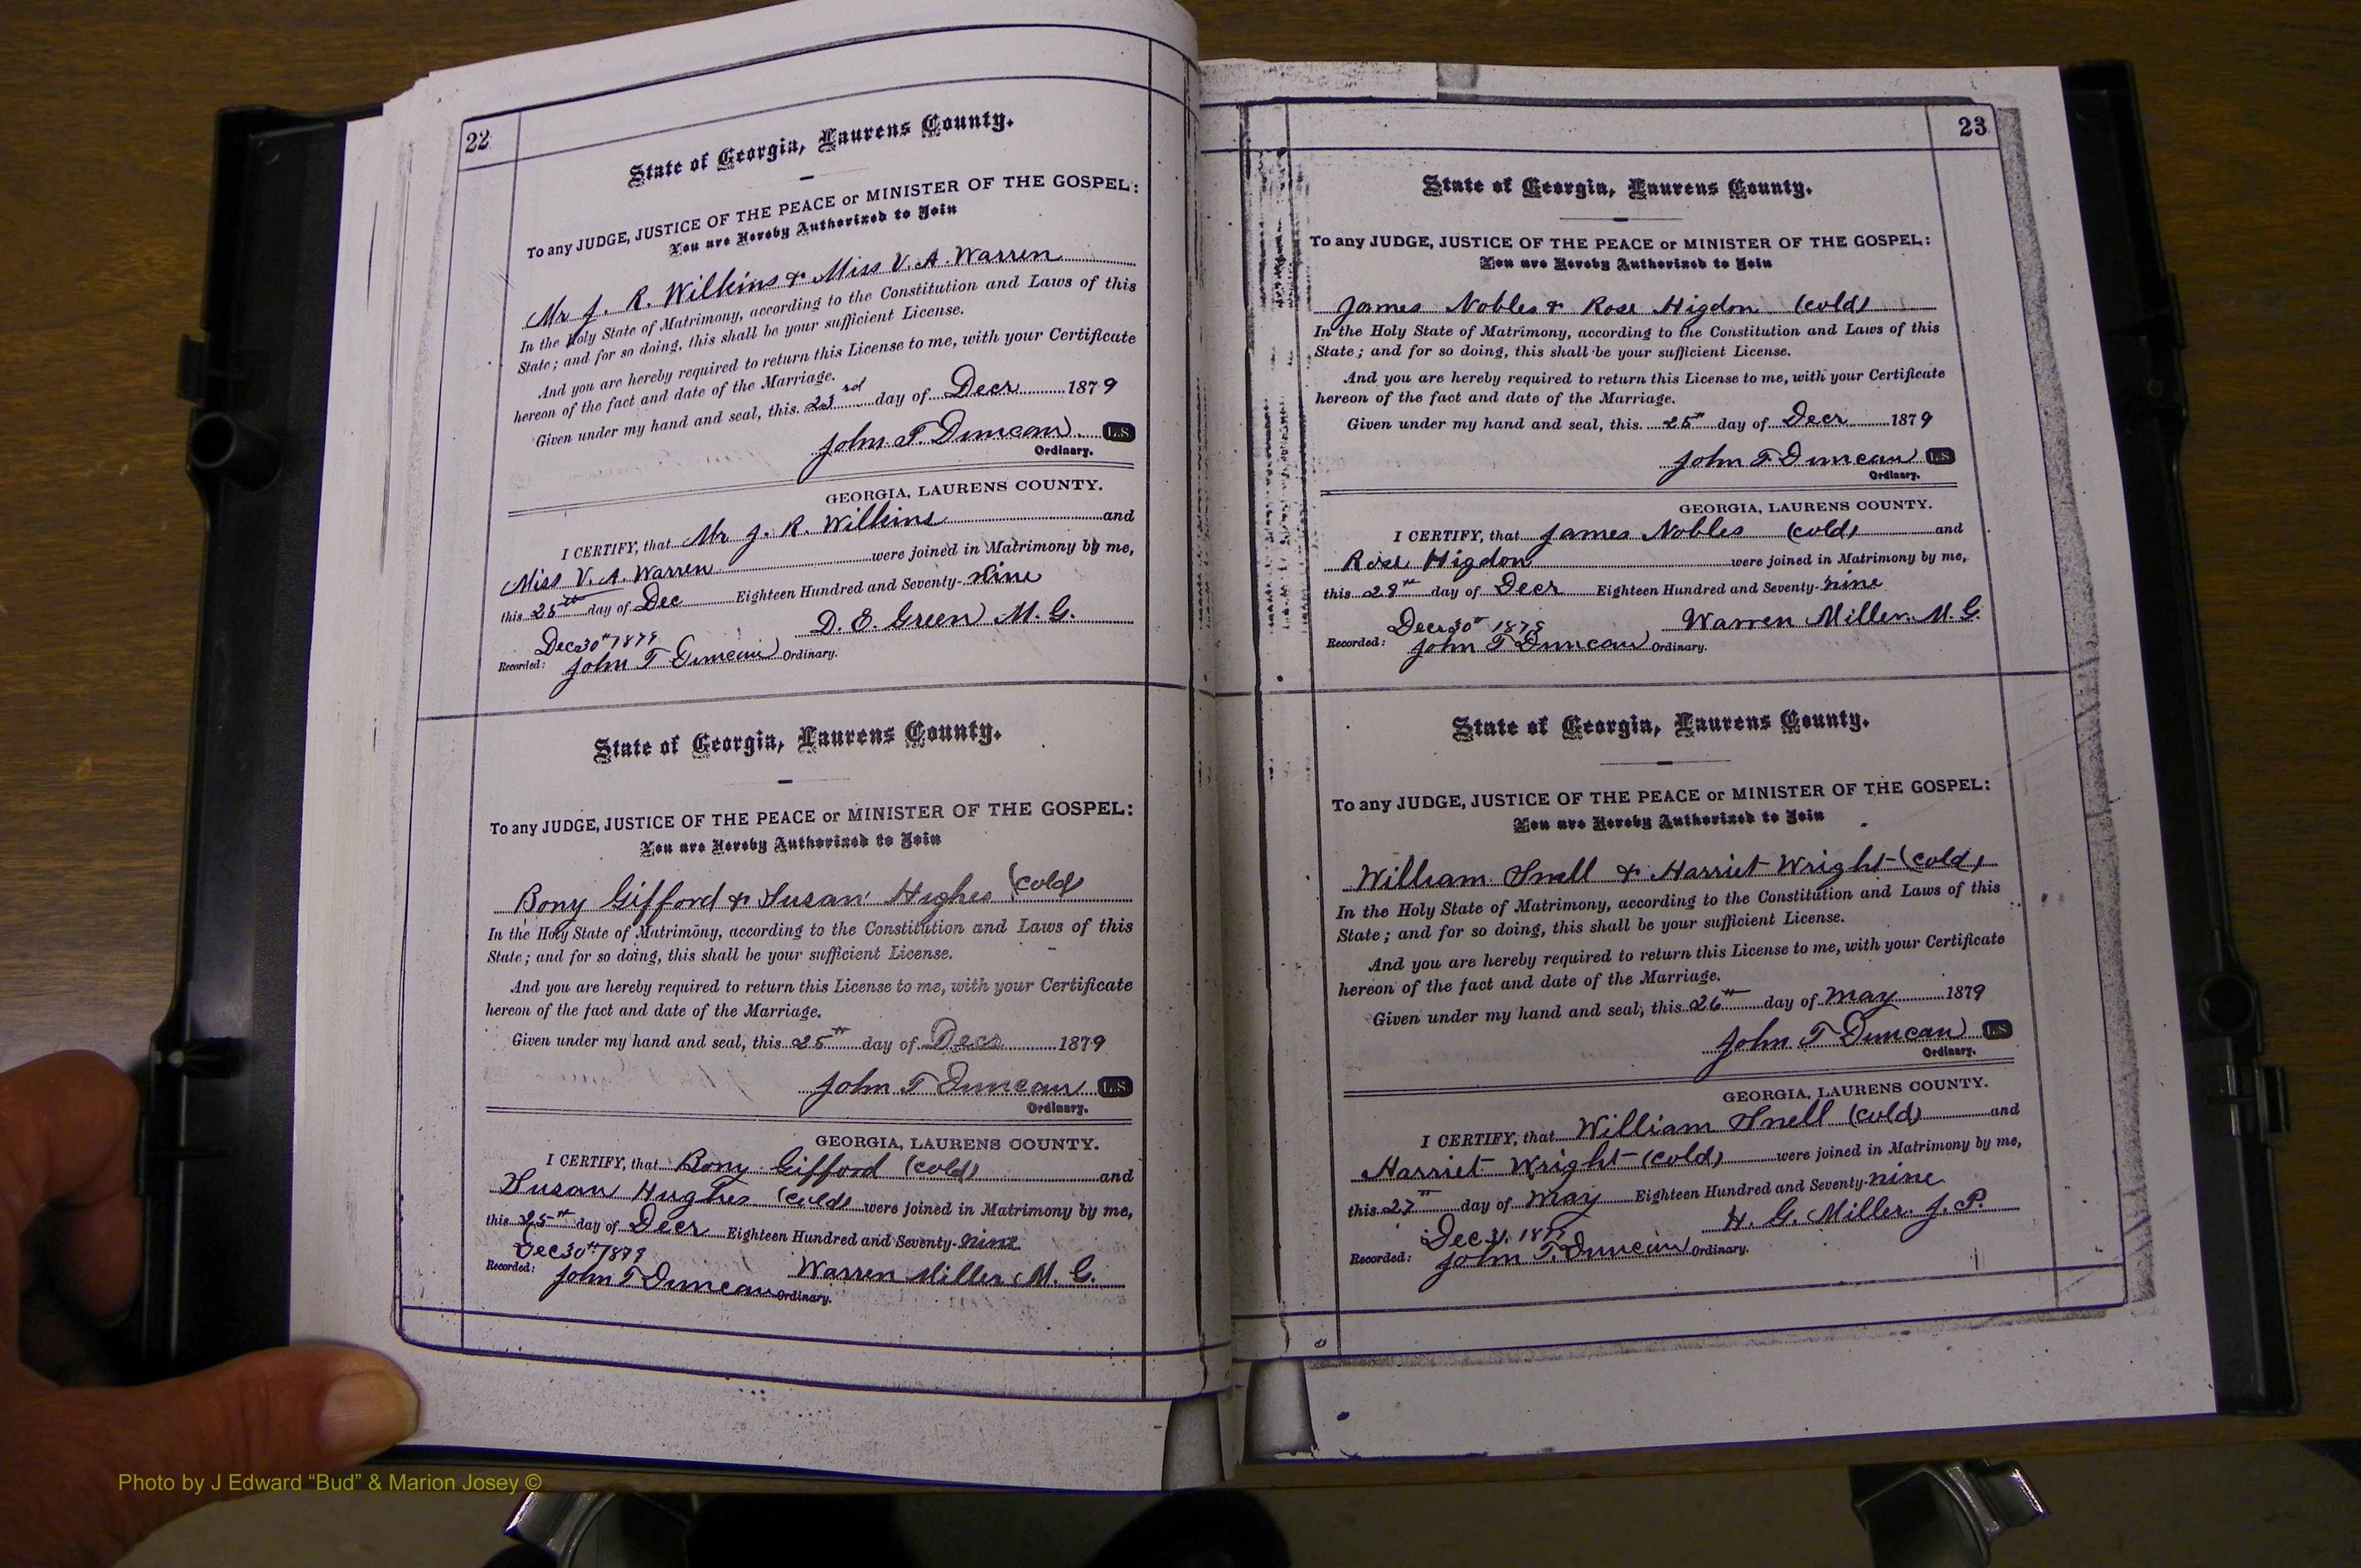 22
State of Georgia, Laurens County.
To any JUDGE, JUSTICE OF THE PEACE or MINISTER OF THE GOSPEL:
You are Hereby Authorized to Join
Mr J. R. Wilkins & Miss V. A. Warren
In the Holy State of Matrimony, according to the Constitution and Laws of this
State; and for so doing, this shall be your sufficient License.
And you are hereby required to return this License to me, with your Certificate
hereon of the fact and date of the Marriage.
Given under my hand and seal, this 23rd day of Decr 1879
John T. Duncan L.S.
Ordinary.
GEORGIA, LAURENS COUNTY.
I CERTIFY, that Mr J. R. Wilkins and
Miss V. A. Warren were joined in Matrimony by me,
this 25th day of Dec Eighteen Hundred and Seventy-nine
D. E. Green M. G.
Dec 30th 1879
Recorded: John T Duncan Ordinary.
State of Georgia, Laurens County.
To any JUDGE, JUSTICE OF THE PEACE or MINISTER OF THE GOSPEL:
You are Hereby Authorized to Join
Bony Gifford & Susan Hughes (cold)
In the Holy State of Matrimony, according to the Constitution and Laws of this
State; and for so doing, this shall be your sufficient License.
And you are hereby required to return this License to me, with your Certificate
hereon of the fact and date of the Marriage.
Given under my hand and seal, this 25th day of Decr 1879
John T Duncan L.S.
Ordinary.
GEORGIA, LAURENS COUNTY.
I CERTIFY, that Bony Gifford (cold) and
Susan Hughes (cold) were joined in Matrimony by me,
this 25th day of Decr Eighteen Hundred and Seventy-nine
Dec 30th 1879
Warren Miller M. G.
Recorded: John T Duncan Ordinary.
23
State of Georgia, Laurens County.
To any JUDGE, JUSTICE OF THE PEACE or MINISTER OF THE GOSPEL:
You are Hereby Authorized to Join
James Nobles & Rose Higdon (cold)
In the Holy State of Matrimony, according to the Constitution and Laws of this
State; and for so doing, this shall be your sufficient License.
And you are hereby required to return this License to me, with your Certificate
hereon of the fact and date of the Marriage.
Given under my hand and seal, this 25th day of Decr 1879
John T Duncan L.S.
Ordinary.
GEORGIA, LAURENS COUNTY.
I CERTIFY, that James Nobles (cold) and
Rose Higdon were joined in Matrimony by me,
this 29th day of Decr Eighteen Hundred and Seventy-nine
Warren Miller. M. G.
Decr 30th 1879
Recorded: John T Duncan Ordinary.
State of Georgia, Laurens County.
To any JUDGE, JUSTICE OF THE PEACE or MINISTER OF THE GOSPEL:
You are Hereby Authorized to Join
William Snell & Harriet Wright (cold)
In the Holy State of Matrimony, according to the Constitution and Laws of this
State; and for so doing, this shall be your sufficient License.
And you are hereby required to return this License to me, with your Certificate
hereon of the fact and date of the Marriage.
Given under my hand and seal, this 26th day of May 1879
John T Duncan L.S.
Ordinary.
GEORGIA, LAURENS COUNTY.
I CERTIFY, that William Snell (cold) and
Harriet Wright (cold) were joined in Matrimony by me,
this 27th day of May Eighteen Hundred and Seventy-nine
H. G. Miller. J. P.
Dec 31. 1879
Recorded: John T. Duncan Ordinary.
Photo by J Edward “Bud” & Marion Josey ©